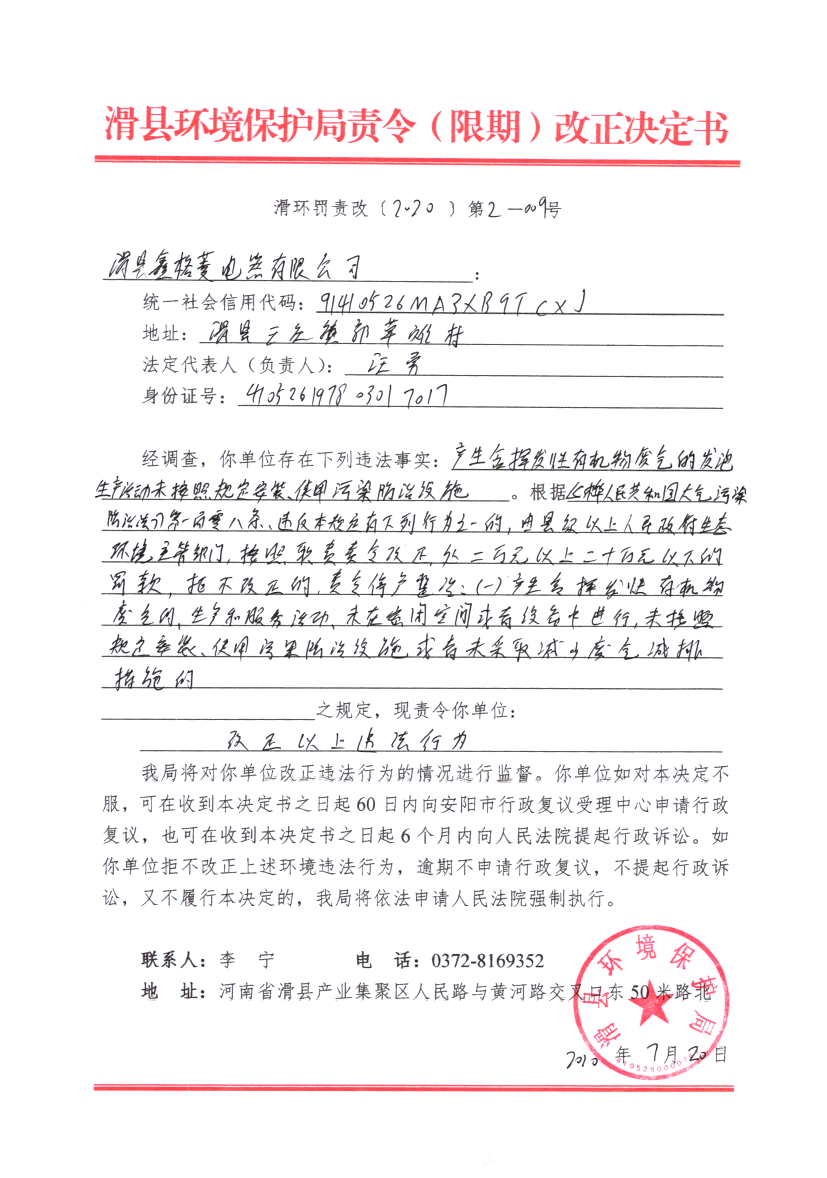 滑县环境保护局责令（限期）改正决定书
滑环罚责改〔2020〕第2—009号
滑县鑫格菱电器有限公司：
统一社会信用代码：91410526MA3XB9TCXJ
地址：滑县 镇郭草 村
法定代表人（负责人）：汪勇
身份证号：410526197803017017
经调查，你单位存在下列违法事实：产生含挥发性有机物废气的发泡
生产活动未按照规定安装、使用污染防治设施。根据《中华人民共和国大气污染
防治法》第一百零八条、违反本规定有下列行为之一的，由县级以上人民政府生态
环境主管部门，按照职责责令改正，处二万元以上二十万元以下的
罚款，拒不改正的，责令停产整治：(一)产生含挥发性有机物
废气的、生产和服务活动、未在密闭空间或者设备中进行，未按照
规定安装、使用污染防治设施或者未采取减少废气减排
措施的
之规定，现责令你单位：
改正以上违法行为
我局将对你单位改正违法行为的情况进行监督。你单位如对本决定不
服，可在收到本决定书之日起60日内向安阳市行政复议受理中心申请行政
复议，也可在收到本决定书之日起6个月内向人民法院提起行政诉讼。如
你单位拒不改正上述环境违法行为，逾期不申请行政复议，不提起行政诉
讼，又不履行本决定的，我局将依法申请人民法院强制执行。
联系人：李 宁 电 话：0372-8169352
地 址：河南省滑县产业集聚区人民路与黄河路交叉口东50米路北
滑县环境保护局
2020年7月20日